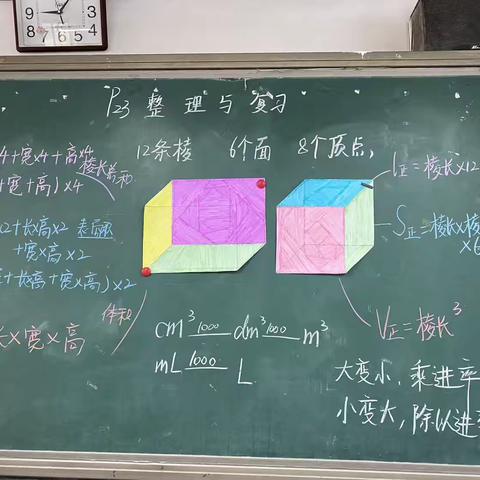 P23 整理与复习
12条棱 6个面 8个顶点,
4+宽×4+高×4
宽+高)×4
棱长总和
l正=棱长×12
×2+长×高×2
+宽×高×2
表面积
+长×高+宽×高)×2
S正=棱长×棱
×6
体积
×宽×高
V正=棱长³
cm³ 1000 dm³ 1000 m³
mL 1000 L
大变小,乘进率
小变大,除以进
9 8 7 6 5 4 3